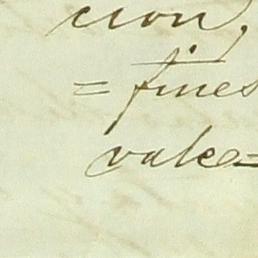 cion,
= fines
vale=